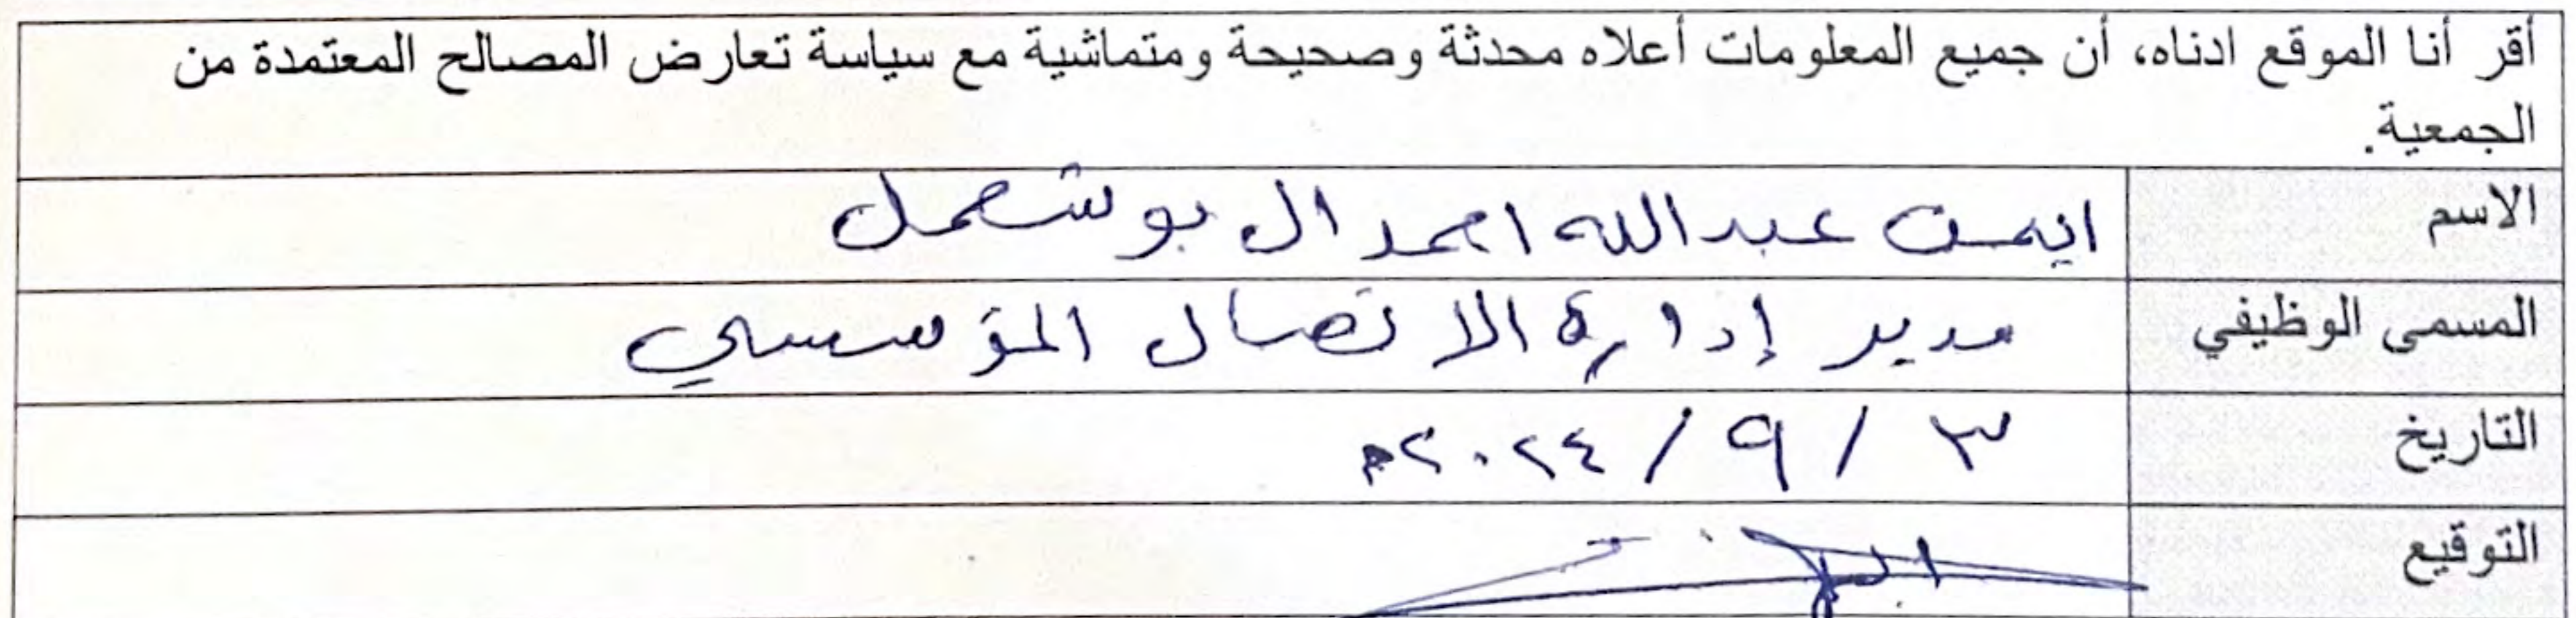 أقر أنا الموقع ادناه، أن جميع المعلومات أعلاه محدثة وصحيحة ومتماشية مع سياسة تعارض المصالح المعتمدة من
الجمعية.
الاسم ايمن عبدالله احمد ال بو شحمل
المسمى الوظيفي مدير إدارة الاتصال المؤسسي
التاريخ ٣ / ٩ / ٢٠٢٤م
التوقيع